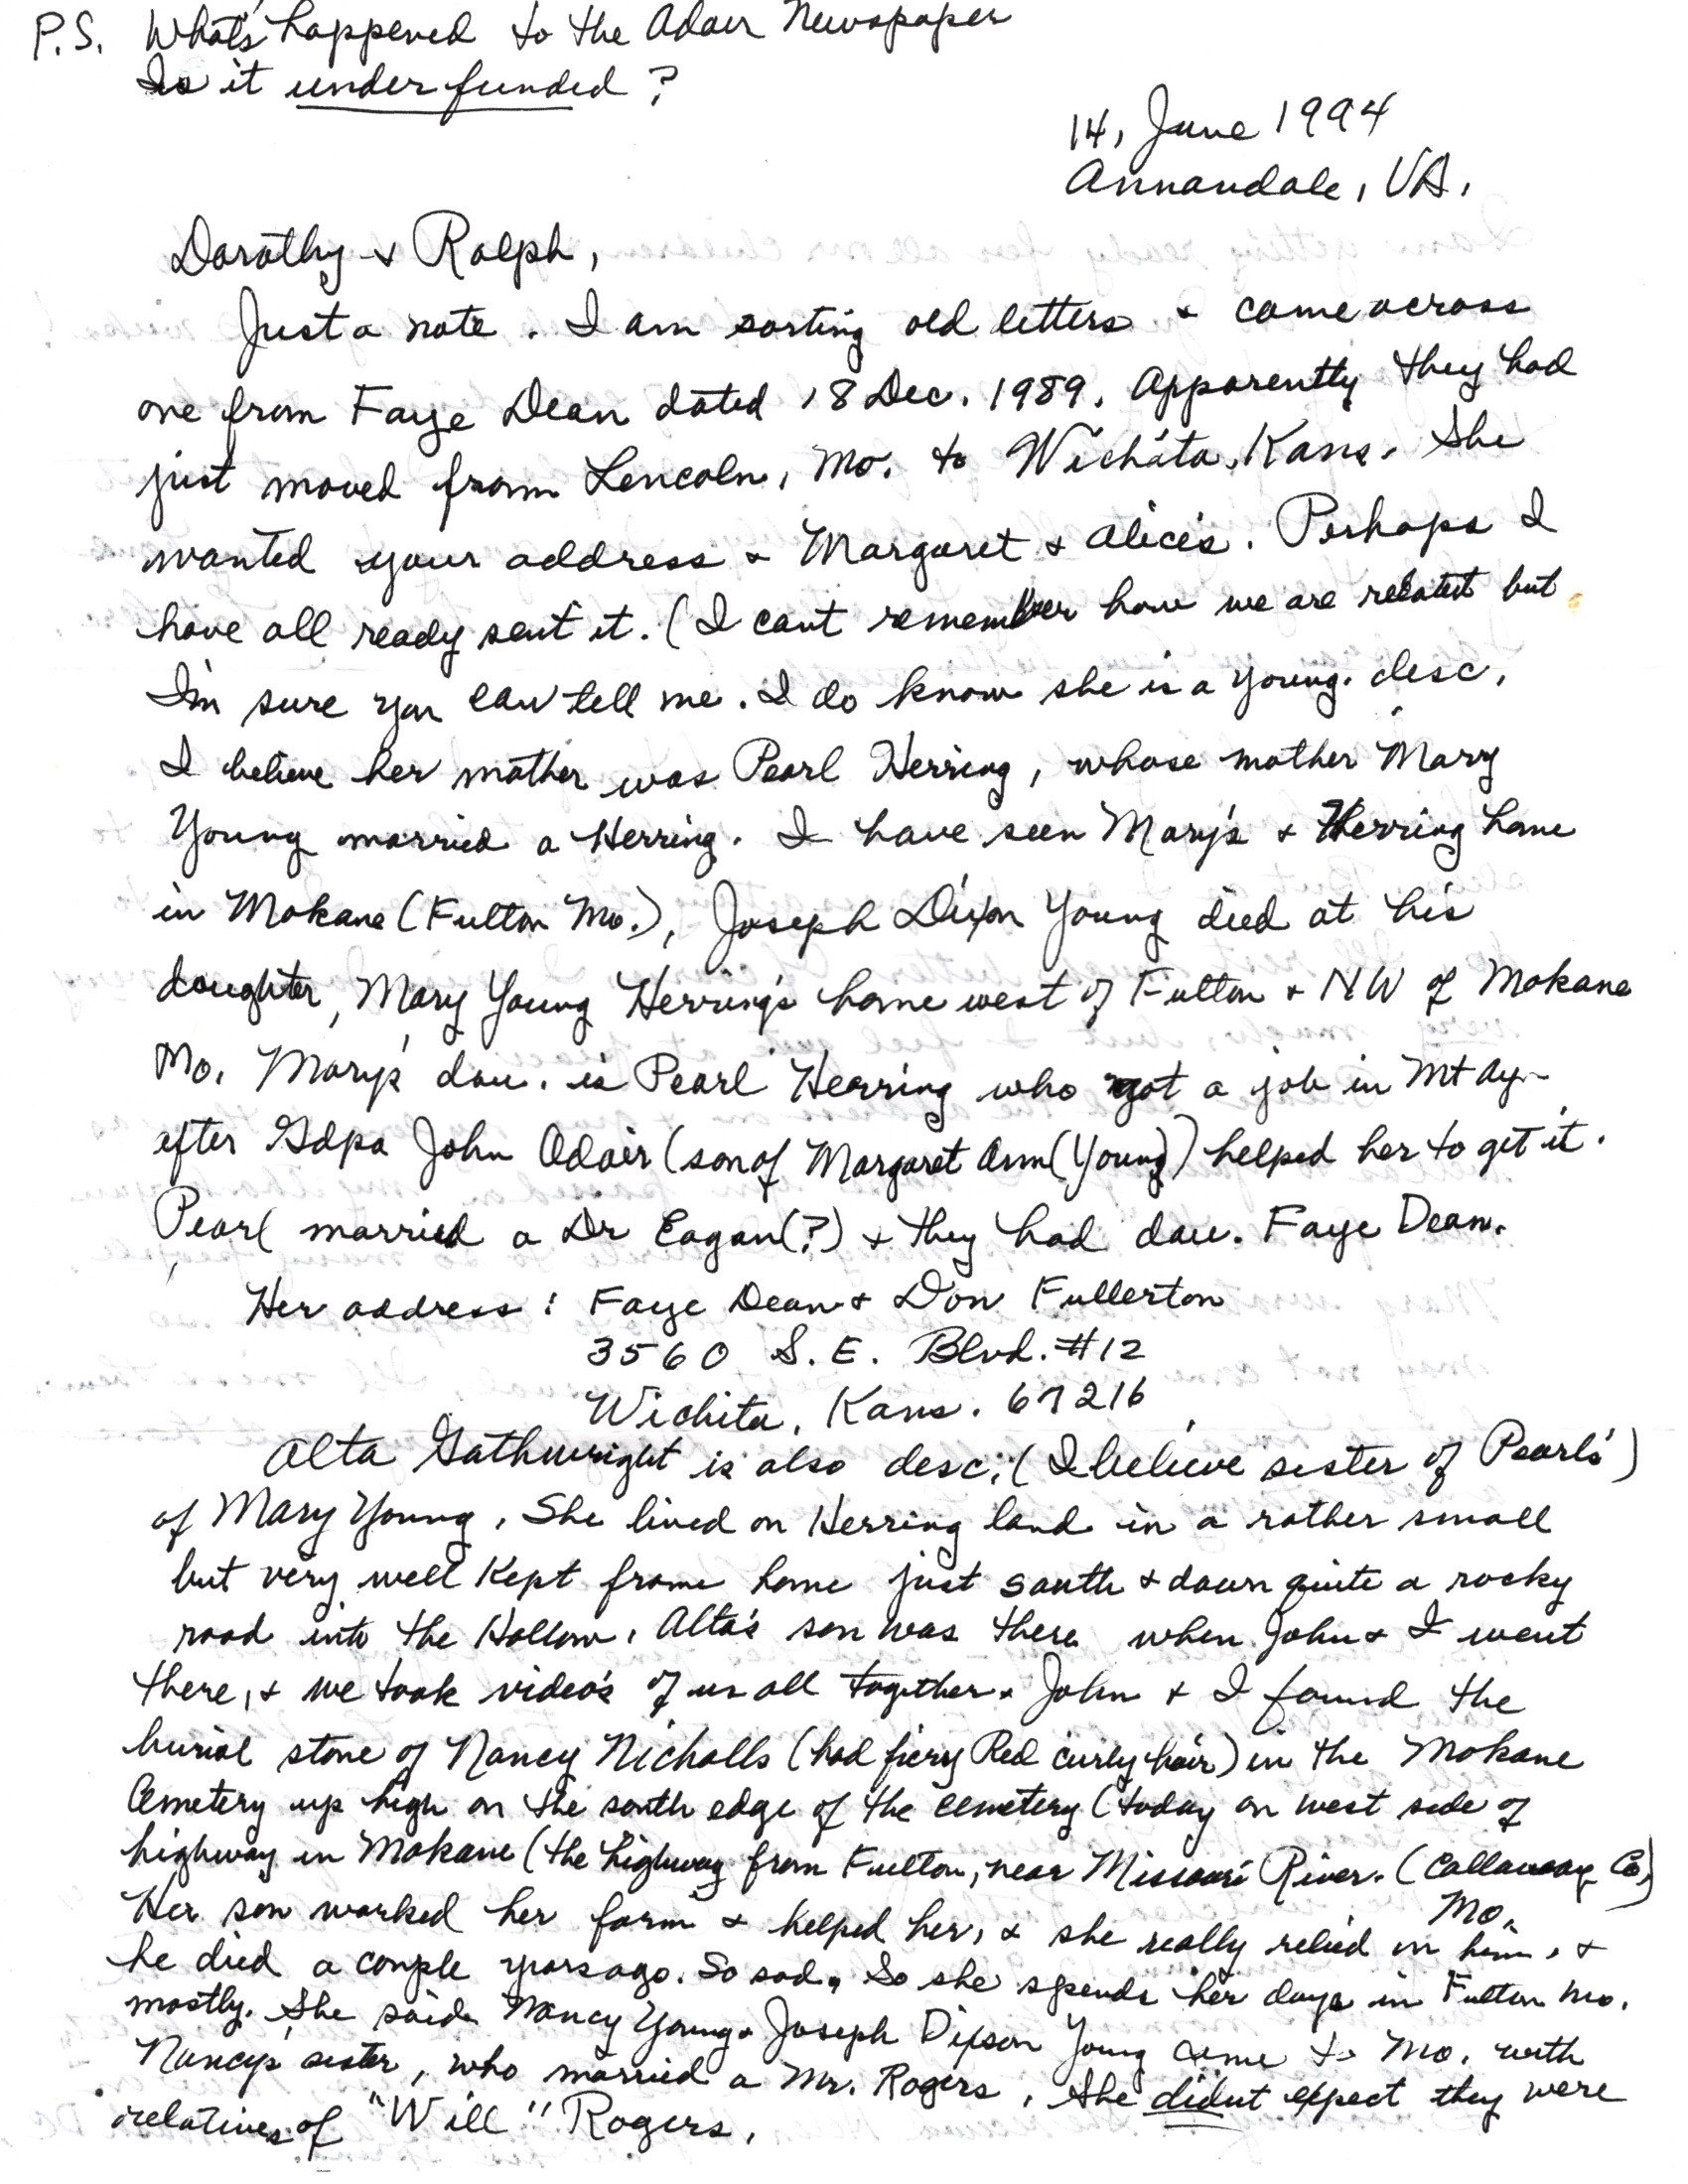 P.S. What's happened to the Adair Newspaper
Is it under funded?
14, June 1994
Annandale, VA.
Dorothy & Ralph,
Just a note. I am sorting old letters & came across
one from Faye Dean dated 18 Dec. 1989. Apparently they had
just moved from Lencoln, Mo. to Wichita, Kans. She
wanted your address & Margaret & Alice's. Perhaps I
have all ready sent it. (I cant remember how we are related but
I'm sure you can tell me. I do know she is a Young. desc.
I believe her mother was Pearl Herring, whose mother Mary
Young married a Herring. I have seen Mary's & Herring home
in Mokane (Fulton Mo.), Joseph Dixon Young died at his
daughter, Mary Young Herring's home west of Fulton & NW of Mokane
Mo. Mary's dau. is Pearl Herring who got a job in Mt Ayr
after Gdpa John Adair (son of Margaret Ann (Young)) helped her to get it.
Pearl married a Dr Eagan(?) & they had dau. Faye Dean.
Her address: Faye Dean & Don Fullerton
3560 S. E. Blvd. #12
Wichita, Kans. 67216
Alta Gathwright is also desc. (I believe sister of Pearls')
of Mary Young. She lived on Herring land in a rather small
but very well kept frame home just south & down quite a rocky
road into the Hollow. Alta's son was there when John & I went
there, & we took video's of us all together. John & I found the
burial stone of Nancy Nicholls (had fiery Red curly hair) in the Mokane
Cemetery up high on the south edge of the cemetery (today on west side of
highway in Mokane (the highway from Fulton, near Missouri River. (Callaway Co,)
Mo.
Her son worked her farm & helped her, & she really relied on him, &
he died a couple years ago. So sad. So she spends her days in Fulton Mo.
mostly. She said Nancy Young & Joseph Dixson Young came to Mo. with
Nancy's sister, who married a Mr. Rogers. She didn't expect they were
relatives of "Will" Rogers.